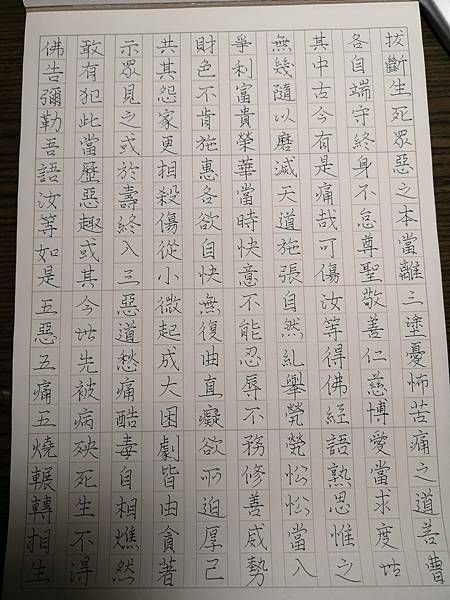 佛告彌勒吾語汝等如是五惡五痛五燒輾轉相生
敢有犯此當歷惡趣或其今世先被病殃死生不得
示眾見之或於壽終入三惡道愁痛酷毒自相燋然
共其怨家更相殺傷從小微起成大困劇皆由貪著
財色不肯施惠各欲自快無復曲直癡欲所迫厚己
爭利富貴榮華當時快意不能忍辱不務修善威勢
無幾隨以磨滅天道施張自然糺舉煢煢忪忪當入
其中古今有是痛哉可傷汝等得佛經語熟思惟之
各自端守終身不怠尊聖敬善仁慈博愛當求度世
拔斷生死眾惡之本當離三塗憂怖苦痛之道若曹